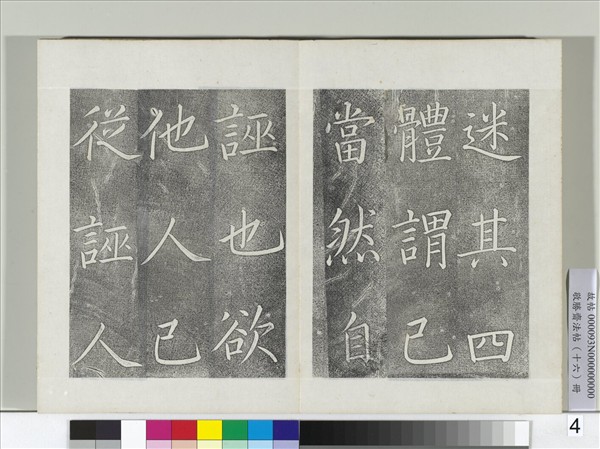 迷其四
體謂己
當然自
誣也欲
他人己
從誣人
故帖 000093N000000000
敬勝齋法帖（十六）冊
4